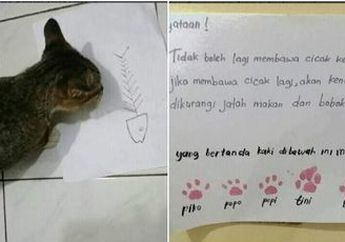 yataan!
Tidak boleh lagi membawa cicak ke
jika membawa cicak lagi, akan ken
dikurangi jatah makan dan bobok
yang bertanda kaki dibawah ini m
piko popo popi tini